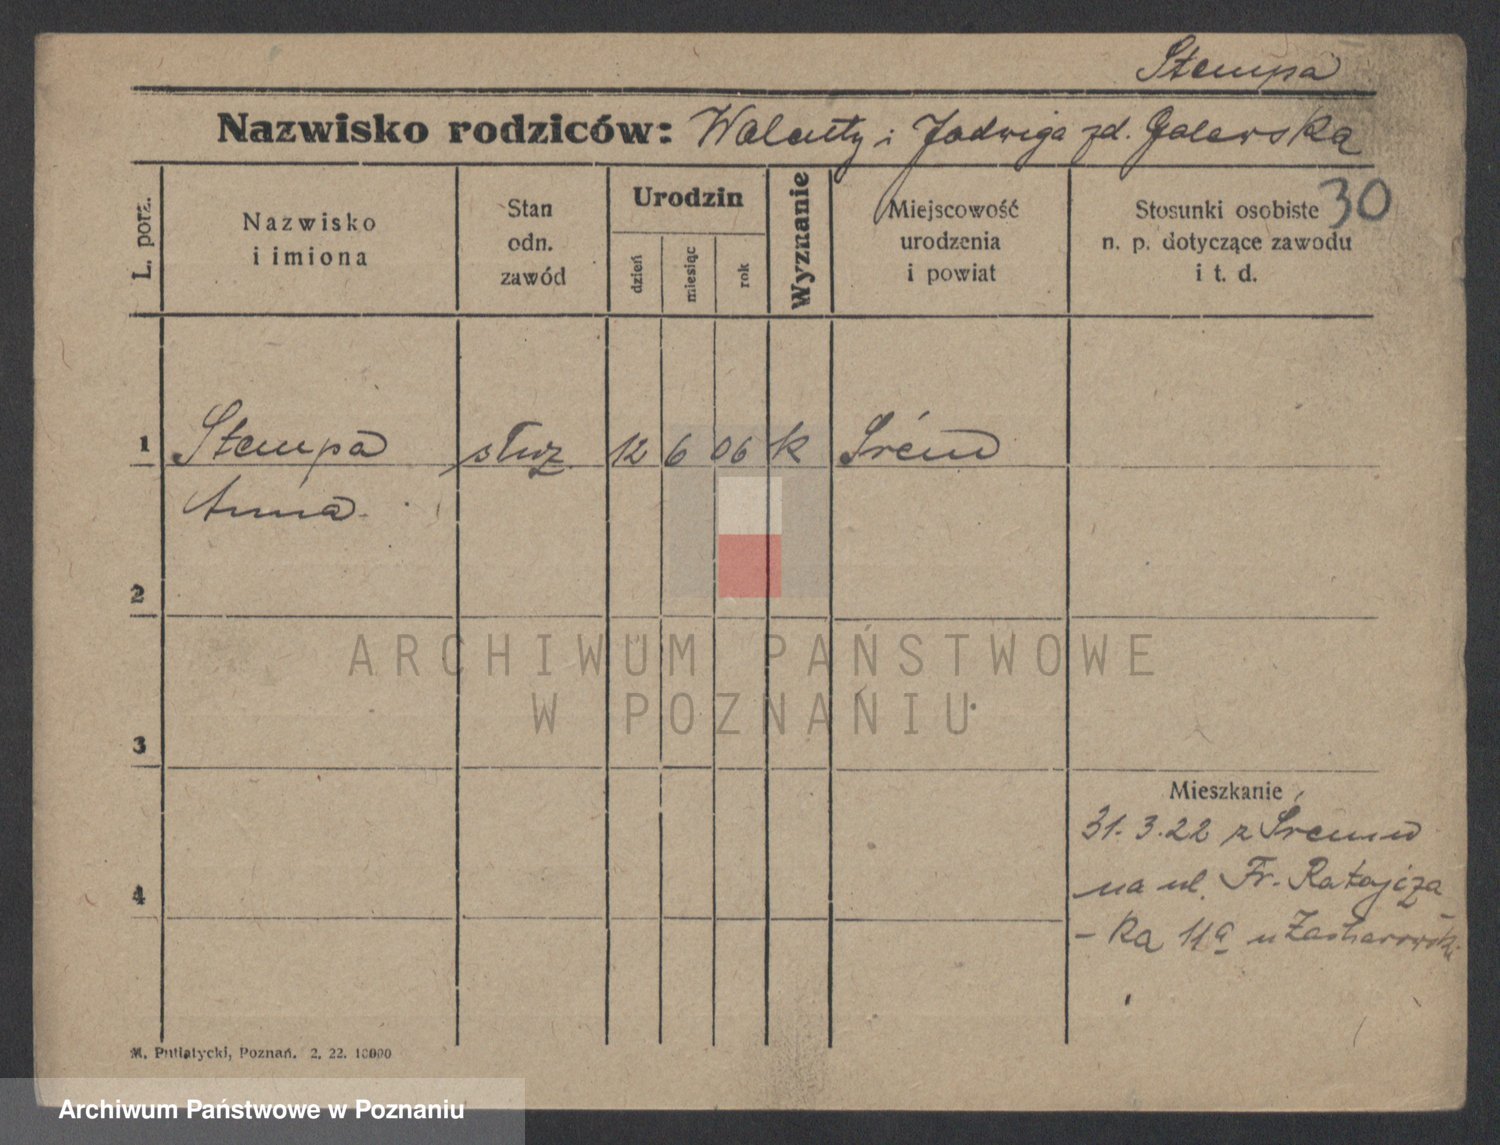 Stempa
Nazwisko rodziców: Walenty i Jadwiga zd. Galewska
30
L. porz.
Nazwisko
i imiona
Stan
odn.
zawód
Urodzin
dzień
miesiąc
rok
Wyznanie
Miejscowość
urodzenia
i powiat
Stosunki osobiste
n. p. dotyczące zawodu
i t. d.
1 Stempa służ. 12 6 06 k Śrem
Anna
2
ARCHIWUM PAŃSTWOWE
W POZNANIU
3
Mieszkanie
31. 3. 22 z Śremu
na ul. Fr. Ratajcza
4
- ka 11a u
M. Putiatycki, Poznań. 2. 22. 10000
Archiwum Państwowe w Poznaniu